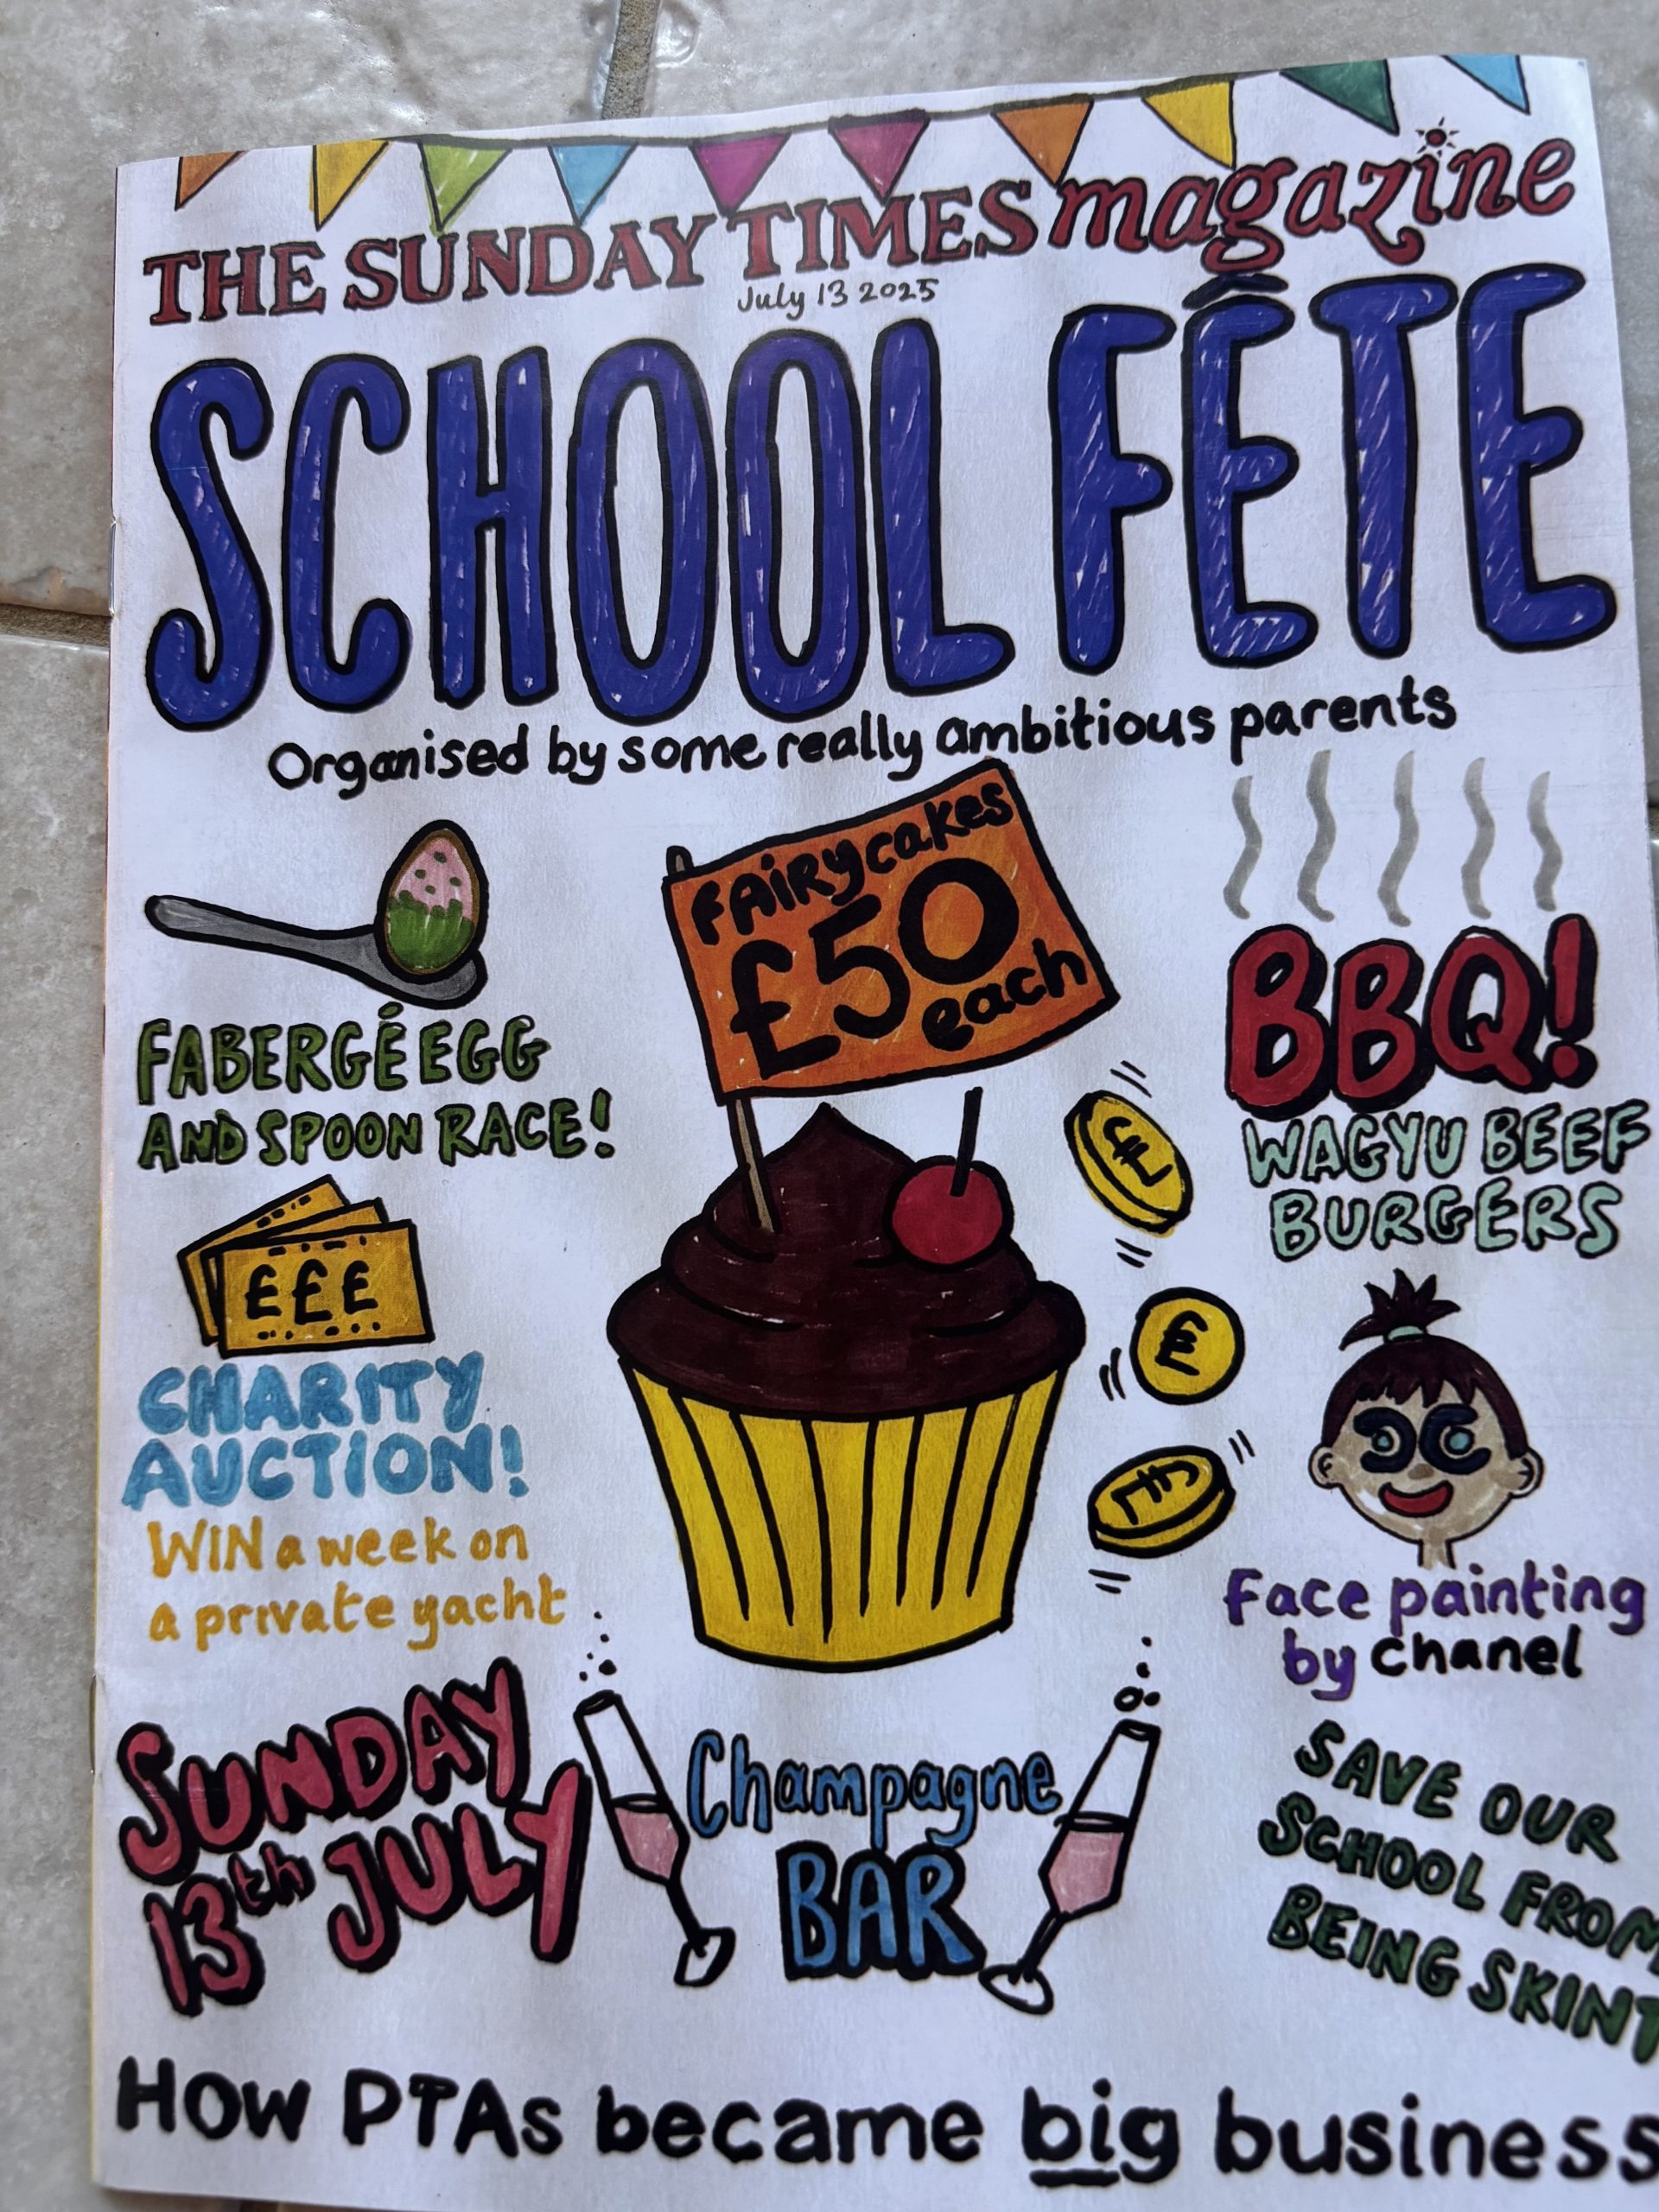 THE SUNDAY TIMES magazine
July 13 2025
SCHOOL FÊTE
Organised by some really ambitious parents
FAiRycakes
£50
each
FABERGÉ EGG
AND SPOON RACE!
BBQ!
WAGYU BEEF
BURGERS
£
£
£
£££
CHARITY
AUCTION!
WIN a week on
a private yacht
Face painting
by chanel
SUNDAY
13th JULY
Champagne
BAR
SAVE OUR
SCHOOL FROM
BEING SKINT
How PTAs became big business